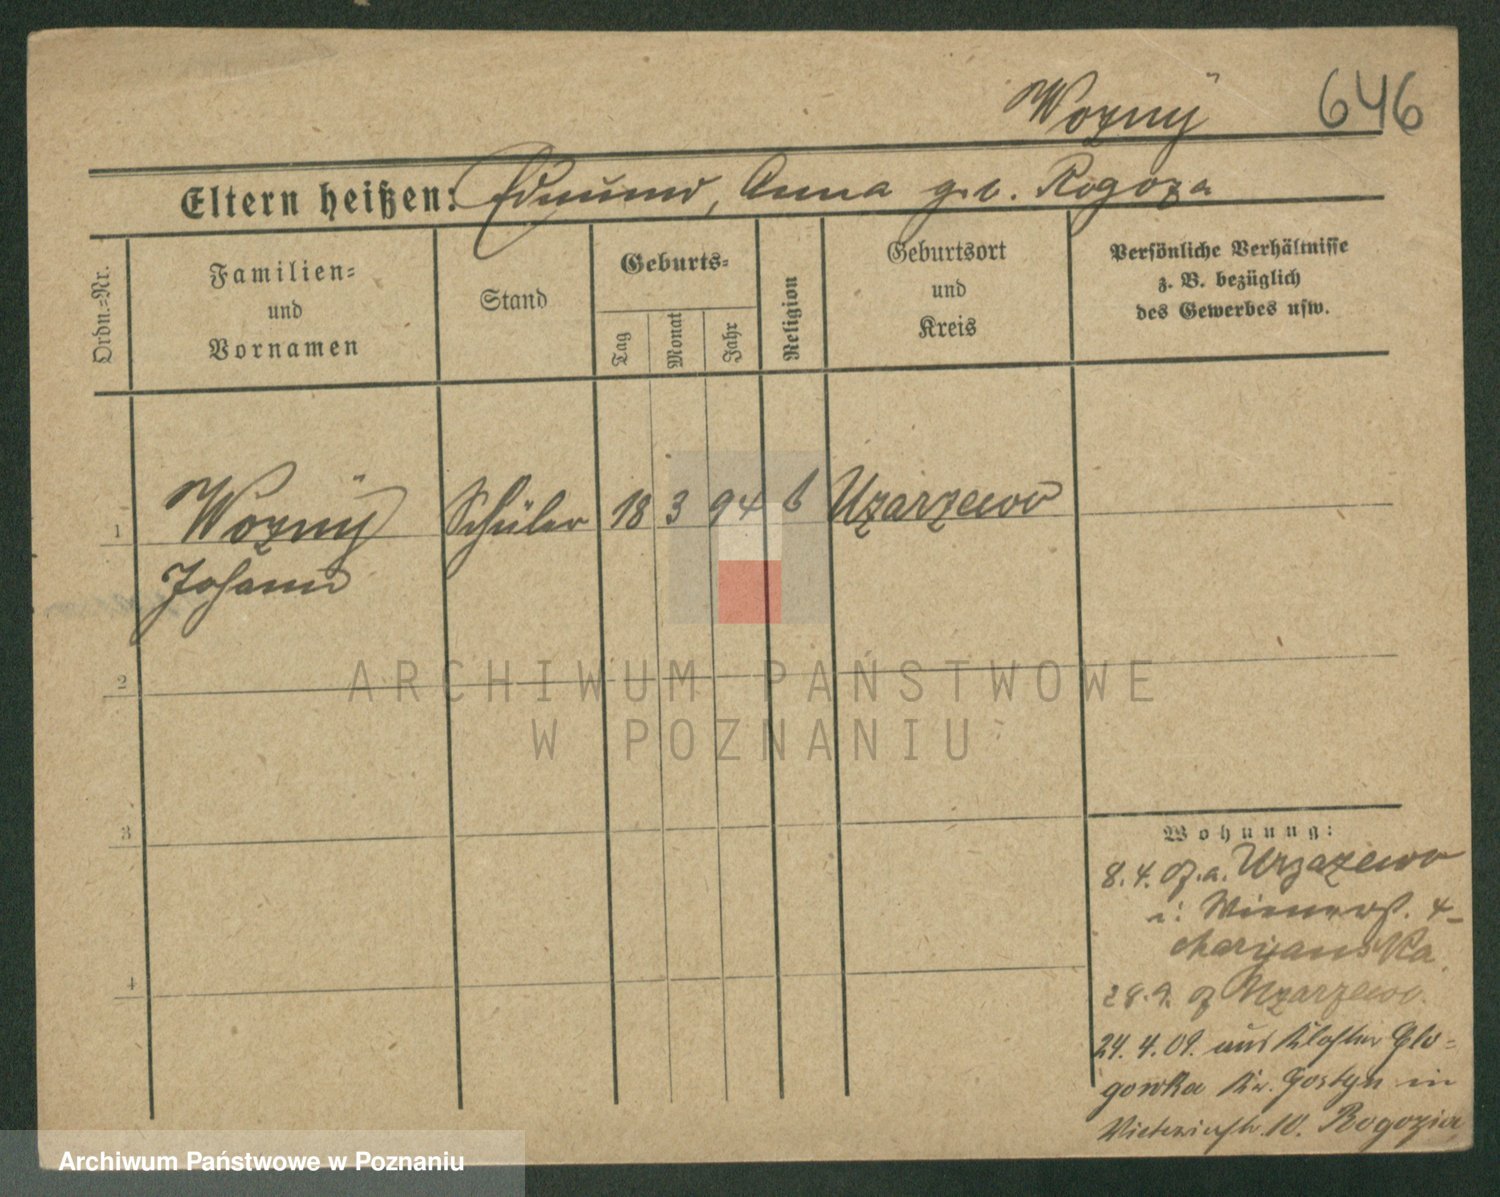 Woznÿ 646
Eltern heißen: Edmund, Anna geb. Rogoza
Ordn.=Nr.
Familien=
und
Vornamen
Stand
Geburts=
Tag
Monat
Jahr
Religion
Geburtsort
und
Kreis
Persönliche Verhältnisse
z. B. bezüglich
des Gewerbes usw.
1 Woznÿ Schüler 18 3 94 Uzarzewo
Johann
2
3
4
Wohnung:
8.4. Uzarzewo
i: Wienerst. 4
Maryanska.
28.9. Uzarzewo.
24.4.09. aus Kloster Glo-
gowka Kr. Gostyn in
Victoriastr. 10. Rogozia
ARCHIWUM PAŃSTWOWE
W POZNANIU
Archiwum Państwowe w Poznaniu